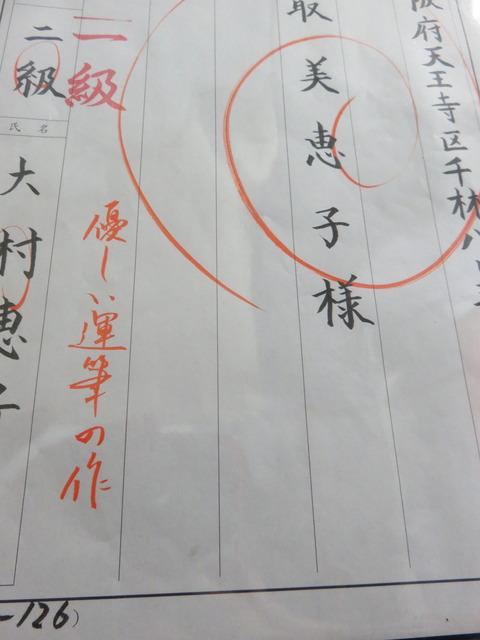 阪府天王寺区千林八
取美恵子様
優しい運筆の作
二級
二級
氏名
大村恵子
-126)